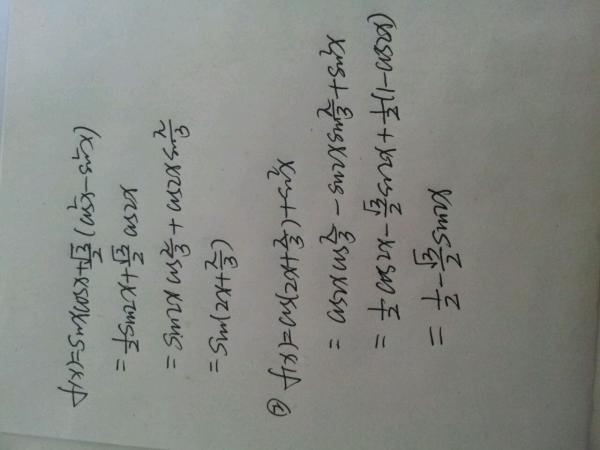 f(x)=sinxcosx+√3/2(cos²x-sin²x)
=1/2sin2x+√3/2cos2x
=sin2xcosπ/3+cos2xsinπ/3
=sin(2x+π/3)
② f(x)=cos(2x+π/3)+sin²x
=cos2xcosπ/3-sin2xsinπ/3+sin²x
=1/2cos2x-√3/2sin2x+1/2(1-cos2x)
=1/2-√3/2sin2x